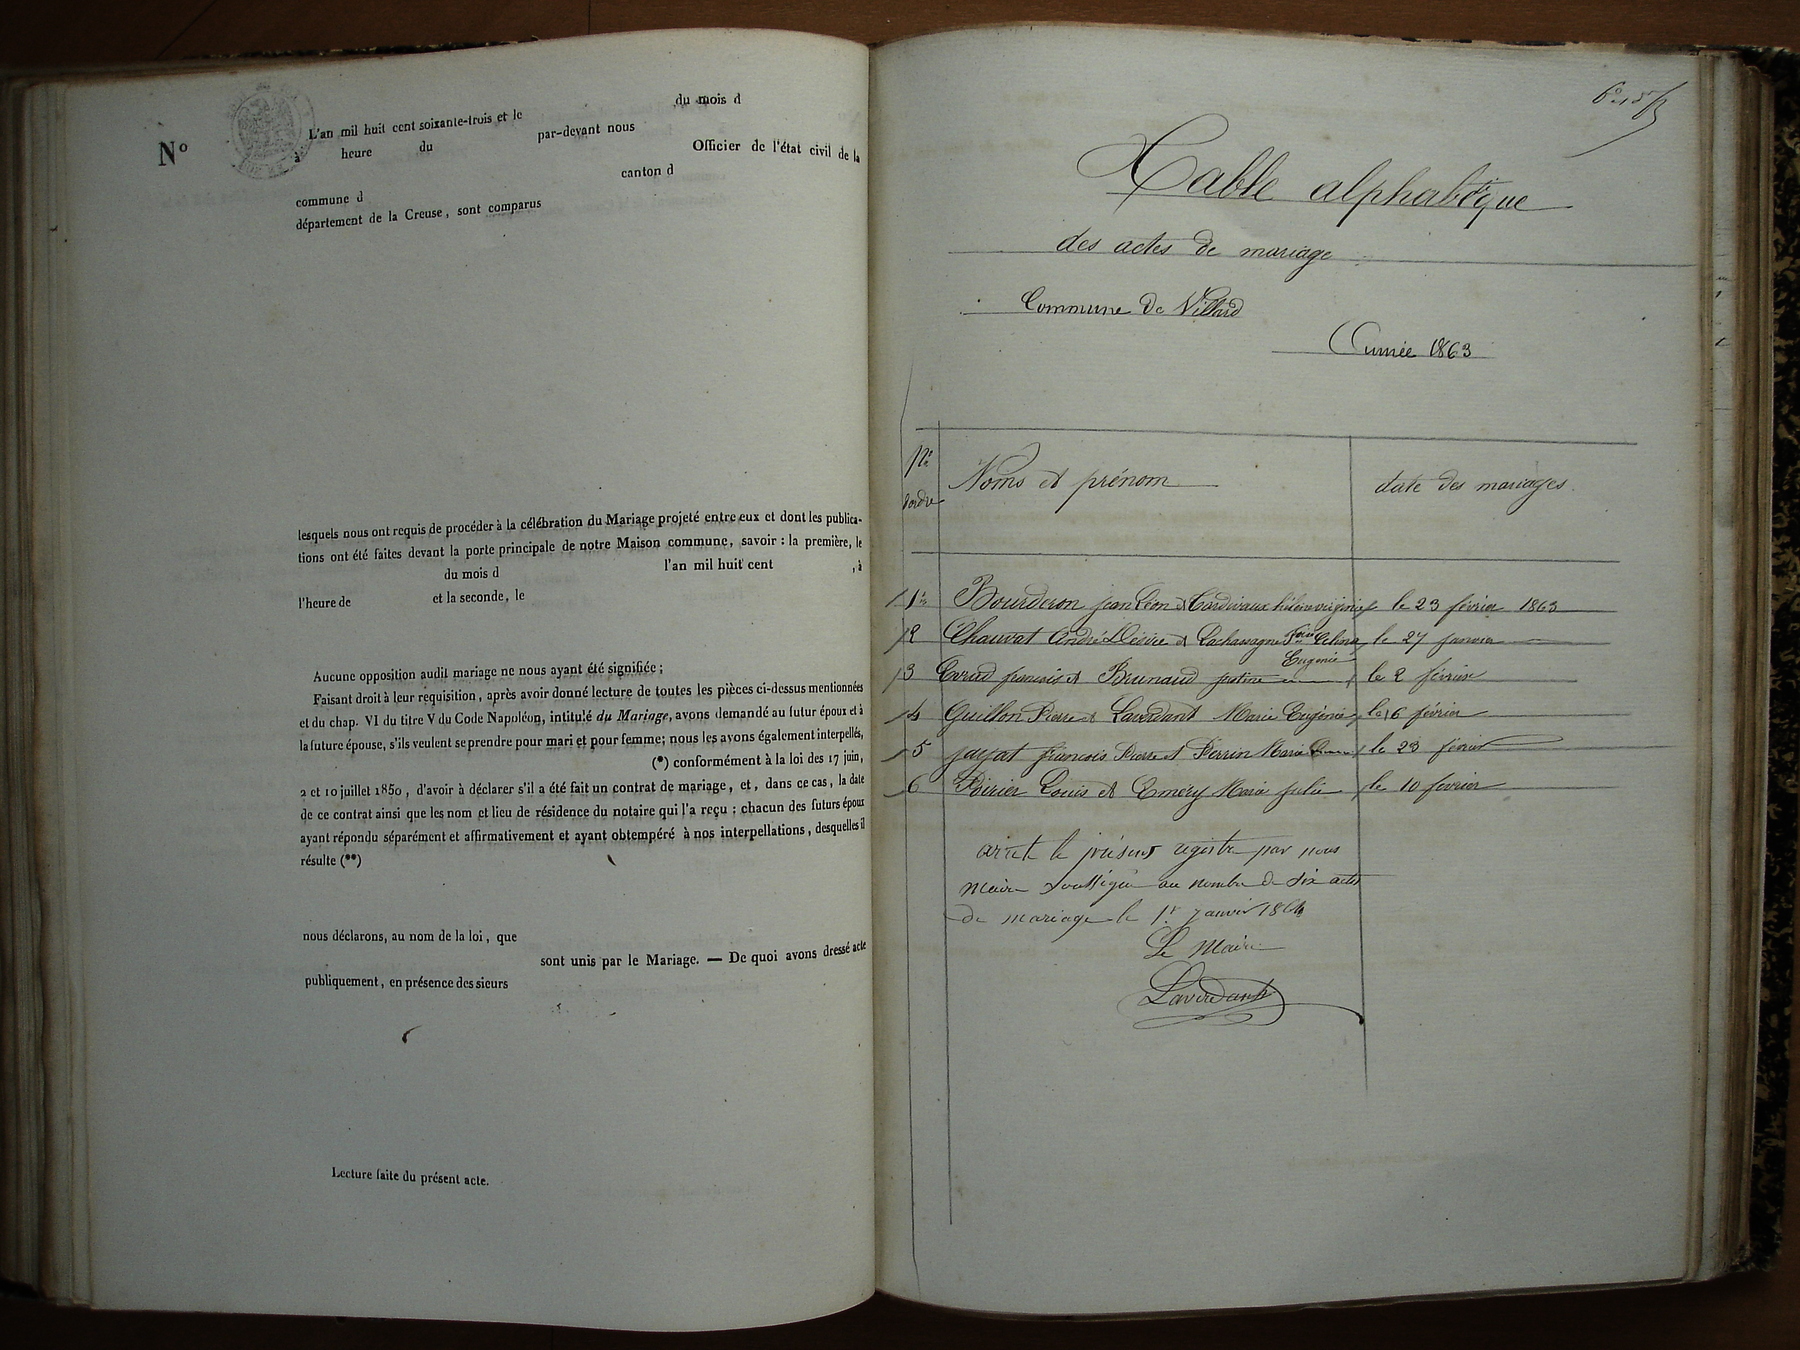 N°
L'an mil huit cent soixante-trois et le du mois d
à heure du par-devant nous
Officier de l'état civil de la
commune d canton d
département de la Creuse, sont comparus
lesquels nous ont requis de procéder à la célébration du Mariage projeté entre eux et dont les publica-
tions ont été faites devant la porte principale de notre Maison commune, savoir : la première, le
du mois d l'an mil huit cent , à
l'heure de et la seconde, le
Aucune opposition audit mariage ne nous ayant été signifiée ;
Faisant droit à leur réquisition, après avoir donné lecture de toutes les pièces ci-dessus mentionnées
et du chap. VI du titre V du Code Napoléon, intitulé du Mariage, avons demandé au futur époux et à
la future épouse, s'ils veulent se prendre pour mari et pour femme; nous les avons également interpellés,
(*) conformément à la loi des 17 juin,
2 et 10 juillet 1850, d'avoir à déclarer s'il a été fait un contrat de mariage, et, dans ce cas, la date
de ce contrat ainsi que les nom et lieu de résidence du notaire qui l'a reçu ; chacun des futurs époux
ayant répondu séparément et affirmativement et ayant obtempéré à nos interpellations, desquelles il
résulte (**)
nous déclarons, au nom de la loi, que
sont unis par le Mariage. — De quoi avons dressé acte
publiquement, en présence des sieurs
Lecture faite du présent acte.
Table alphabétique
des actes de mariage
Commune de Villard
Année 1863
N°
d'ordre
Noms et prénom
date des mariages
1 Bourderon jean Léon et Cardinaux hélène virginie le 23 février 1863
2 Chauvat André et Lachassagne Celina le 27 janvier
Eugenie
3 francois et Brunaud justine le 2 février
4 Guillon Pierre et Laverdant Marie Eugénie le 16 février
5 jarjat francois Pierre et Perrin Marie le 23 février
6 Poirier Louis et Emery Marie julie le 10 février
arrêté le présent registre par nous
Maire soussigné au nombre de six actes
de mariage le 1er janvier 1864
Le Maire
Laverdant